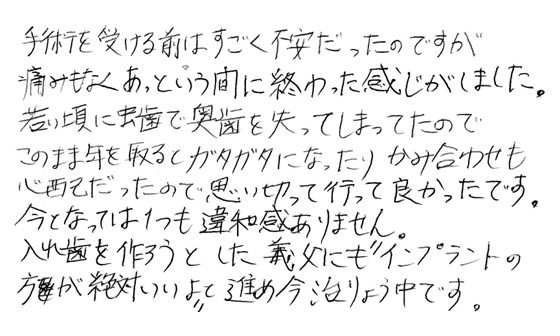 手術を受ける前はすごく不安だったのですが
痛みもなくあっという間に終わった感じがしました。
若い頃に虫歯で奥歯を失ってしまってたので
このまま年を取るとガタガタになったりかみ合わせも
心配だったので思い切って行って良かったです。
今となっては1つも違和感ありません。
入れ歯を作ろうとした義父にも"インプラントの
方が絶対いいよ"と進め今治りょう中です。